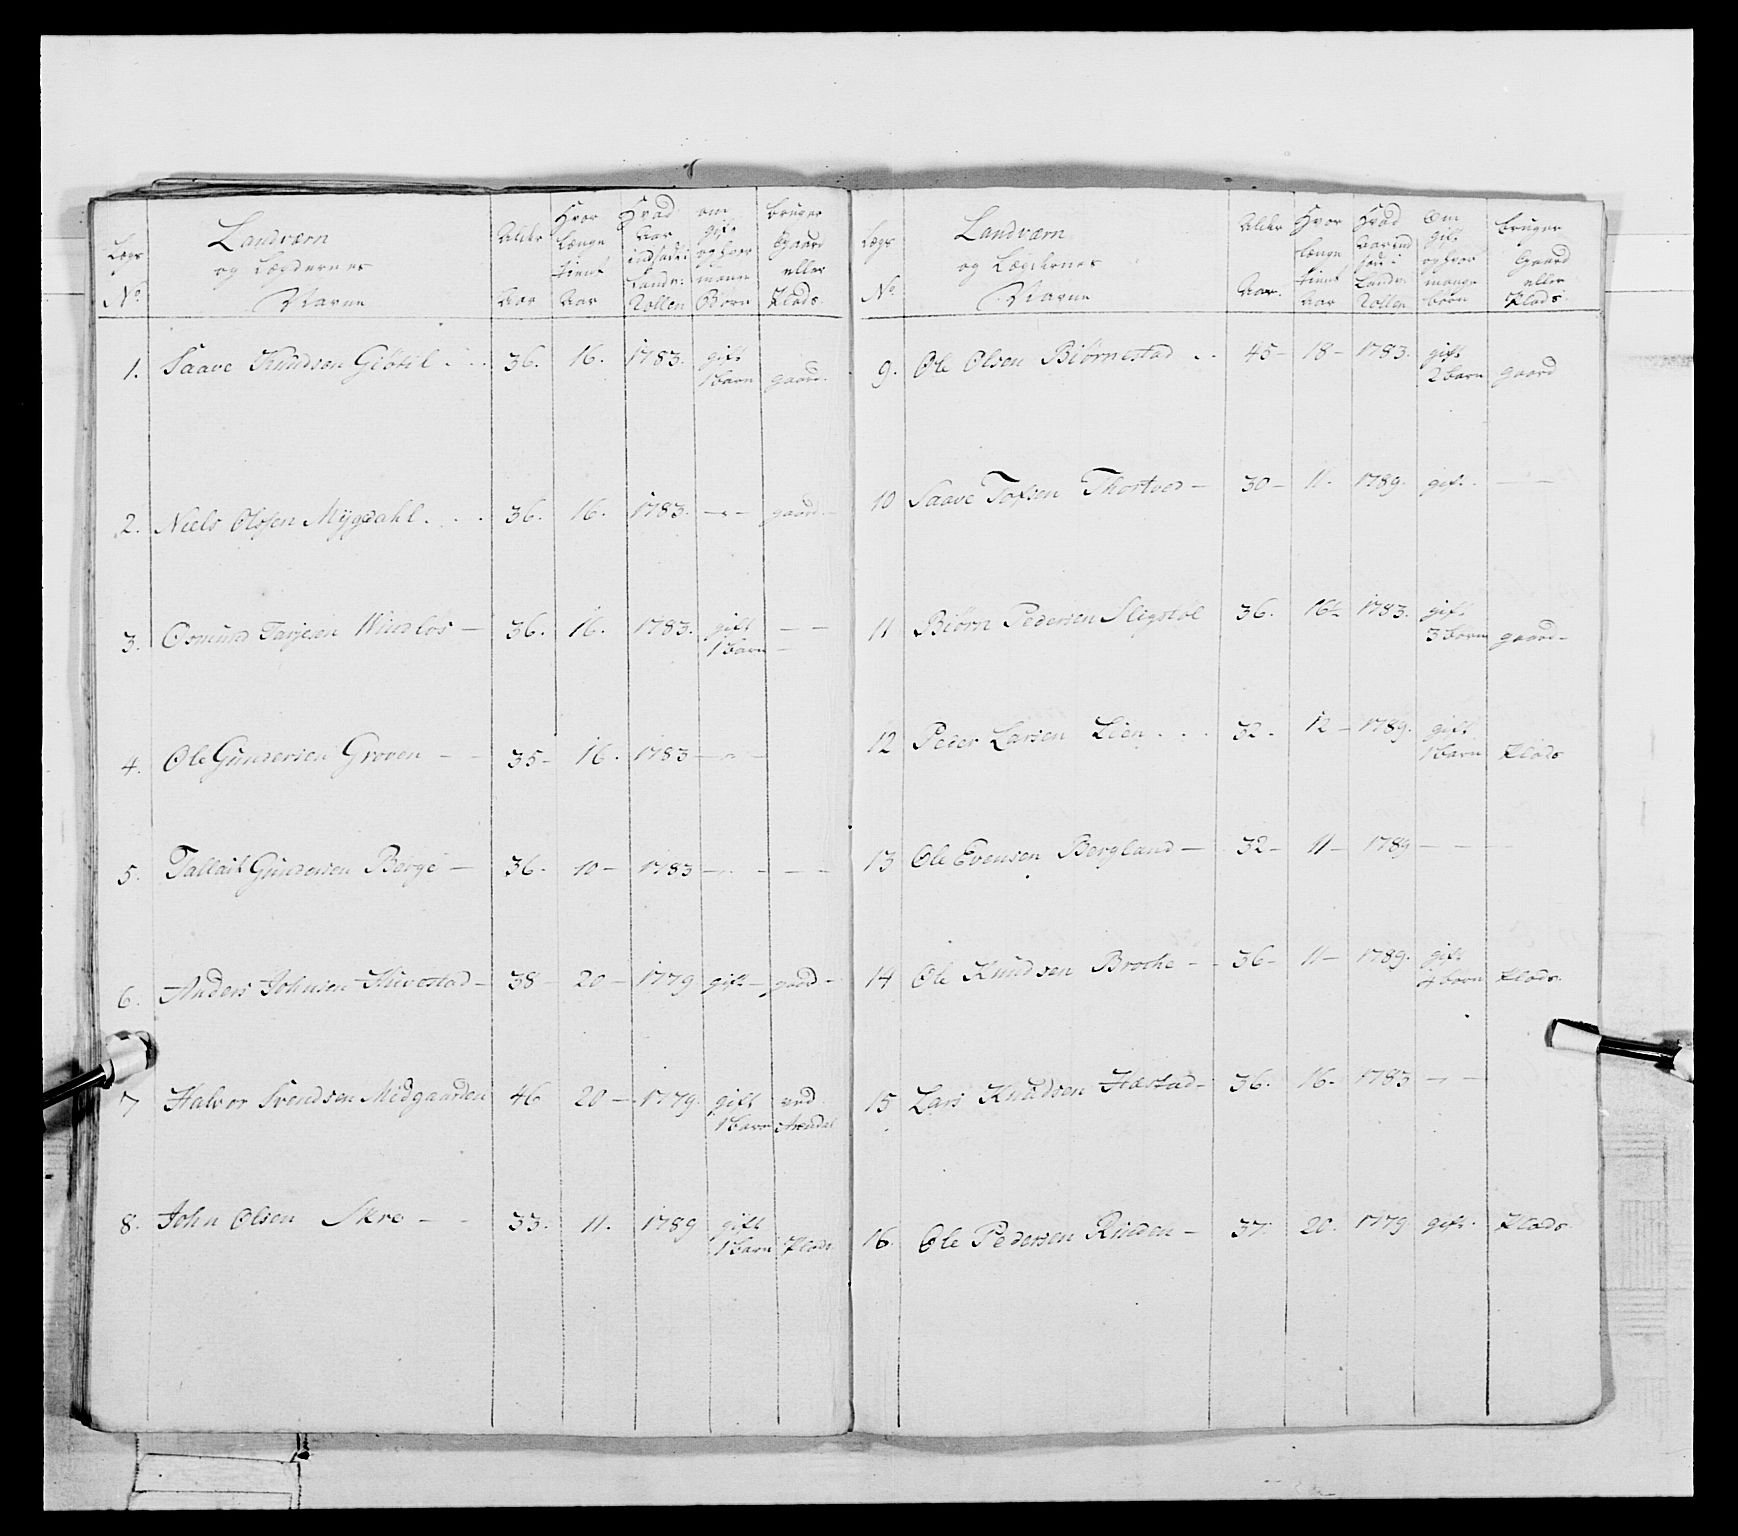 Lægs No. Landværn og Lægdernes Navne Alder Aar Hvor længe tient Aar Hvad Aar indsadt i Landv: Rollen om gift og hvor mange Børn bruger Gaard eller Plads.
1. Saave Knudsen Giøtil . . . 36. 16. 1783. gift 1 barn gaard.
2. Niels Olssen Mygdahl . . . 36. 16. 1783. — " — gaard. —
3. Osmund Tarjesen Windløs — 36. 16. 1783. gift 1 barn — —
4. Ole Gundersen Groven — — 35 — 16. 1783 — " —
5. Tallait Gundersen Berge — 36 - 10 — 1783 — " — — —
6. Anders Johnsen Huvestad — 38 — 20 — 1779 gift — gaard —
7 Halvor Svendsen Midgaarden 46 20 — 1779. gift 1 barn ved Arendal
8. John Olsen Skre — — 33. 11. 1789 gift 1 barn Plads.
Lægs No. Landværn og Lægdernes Navne Alder Aar. Hvor længe tient Aar Hvad Aar ind sadt i Landv: Rollen Om gift og hvor mange børn bruger Gaard eller Plads.
9. Ole Olsen Biørnestad . . 45 — 18 — 1783. gift 2 barn gaard
10 Saave Tofsen Thortved — 30 — 11. 1789. gift. — —
11 Biørn Pedersen Sligstøl 36. 16 — 1783. gift 3 børn gaard —
12 Peder Larsen Lien . . . 32. 12 — 1789. gift 1 barn Plads
13 Ole Evensen Bergland — 32 — 11 — 1789 — — —
14 Ole Knudsen Broche — — 36 — 11 — 1789. gift børn Plads.
15 Lars Knudsen Hæstad — 36. 16 — 1783 — " —
16. Ole Pedersen Rinden — 37. 20. 1779. gift. Plads.